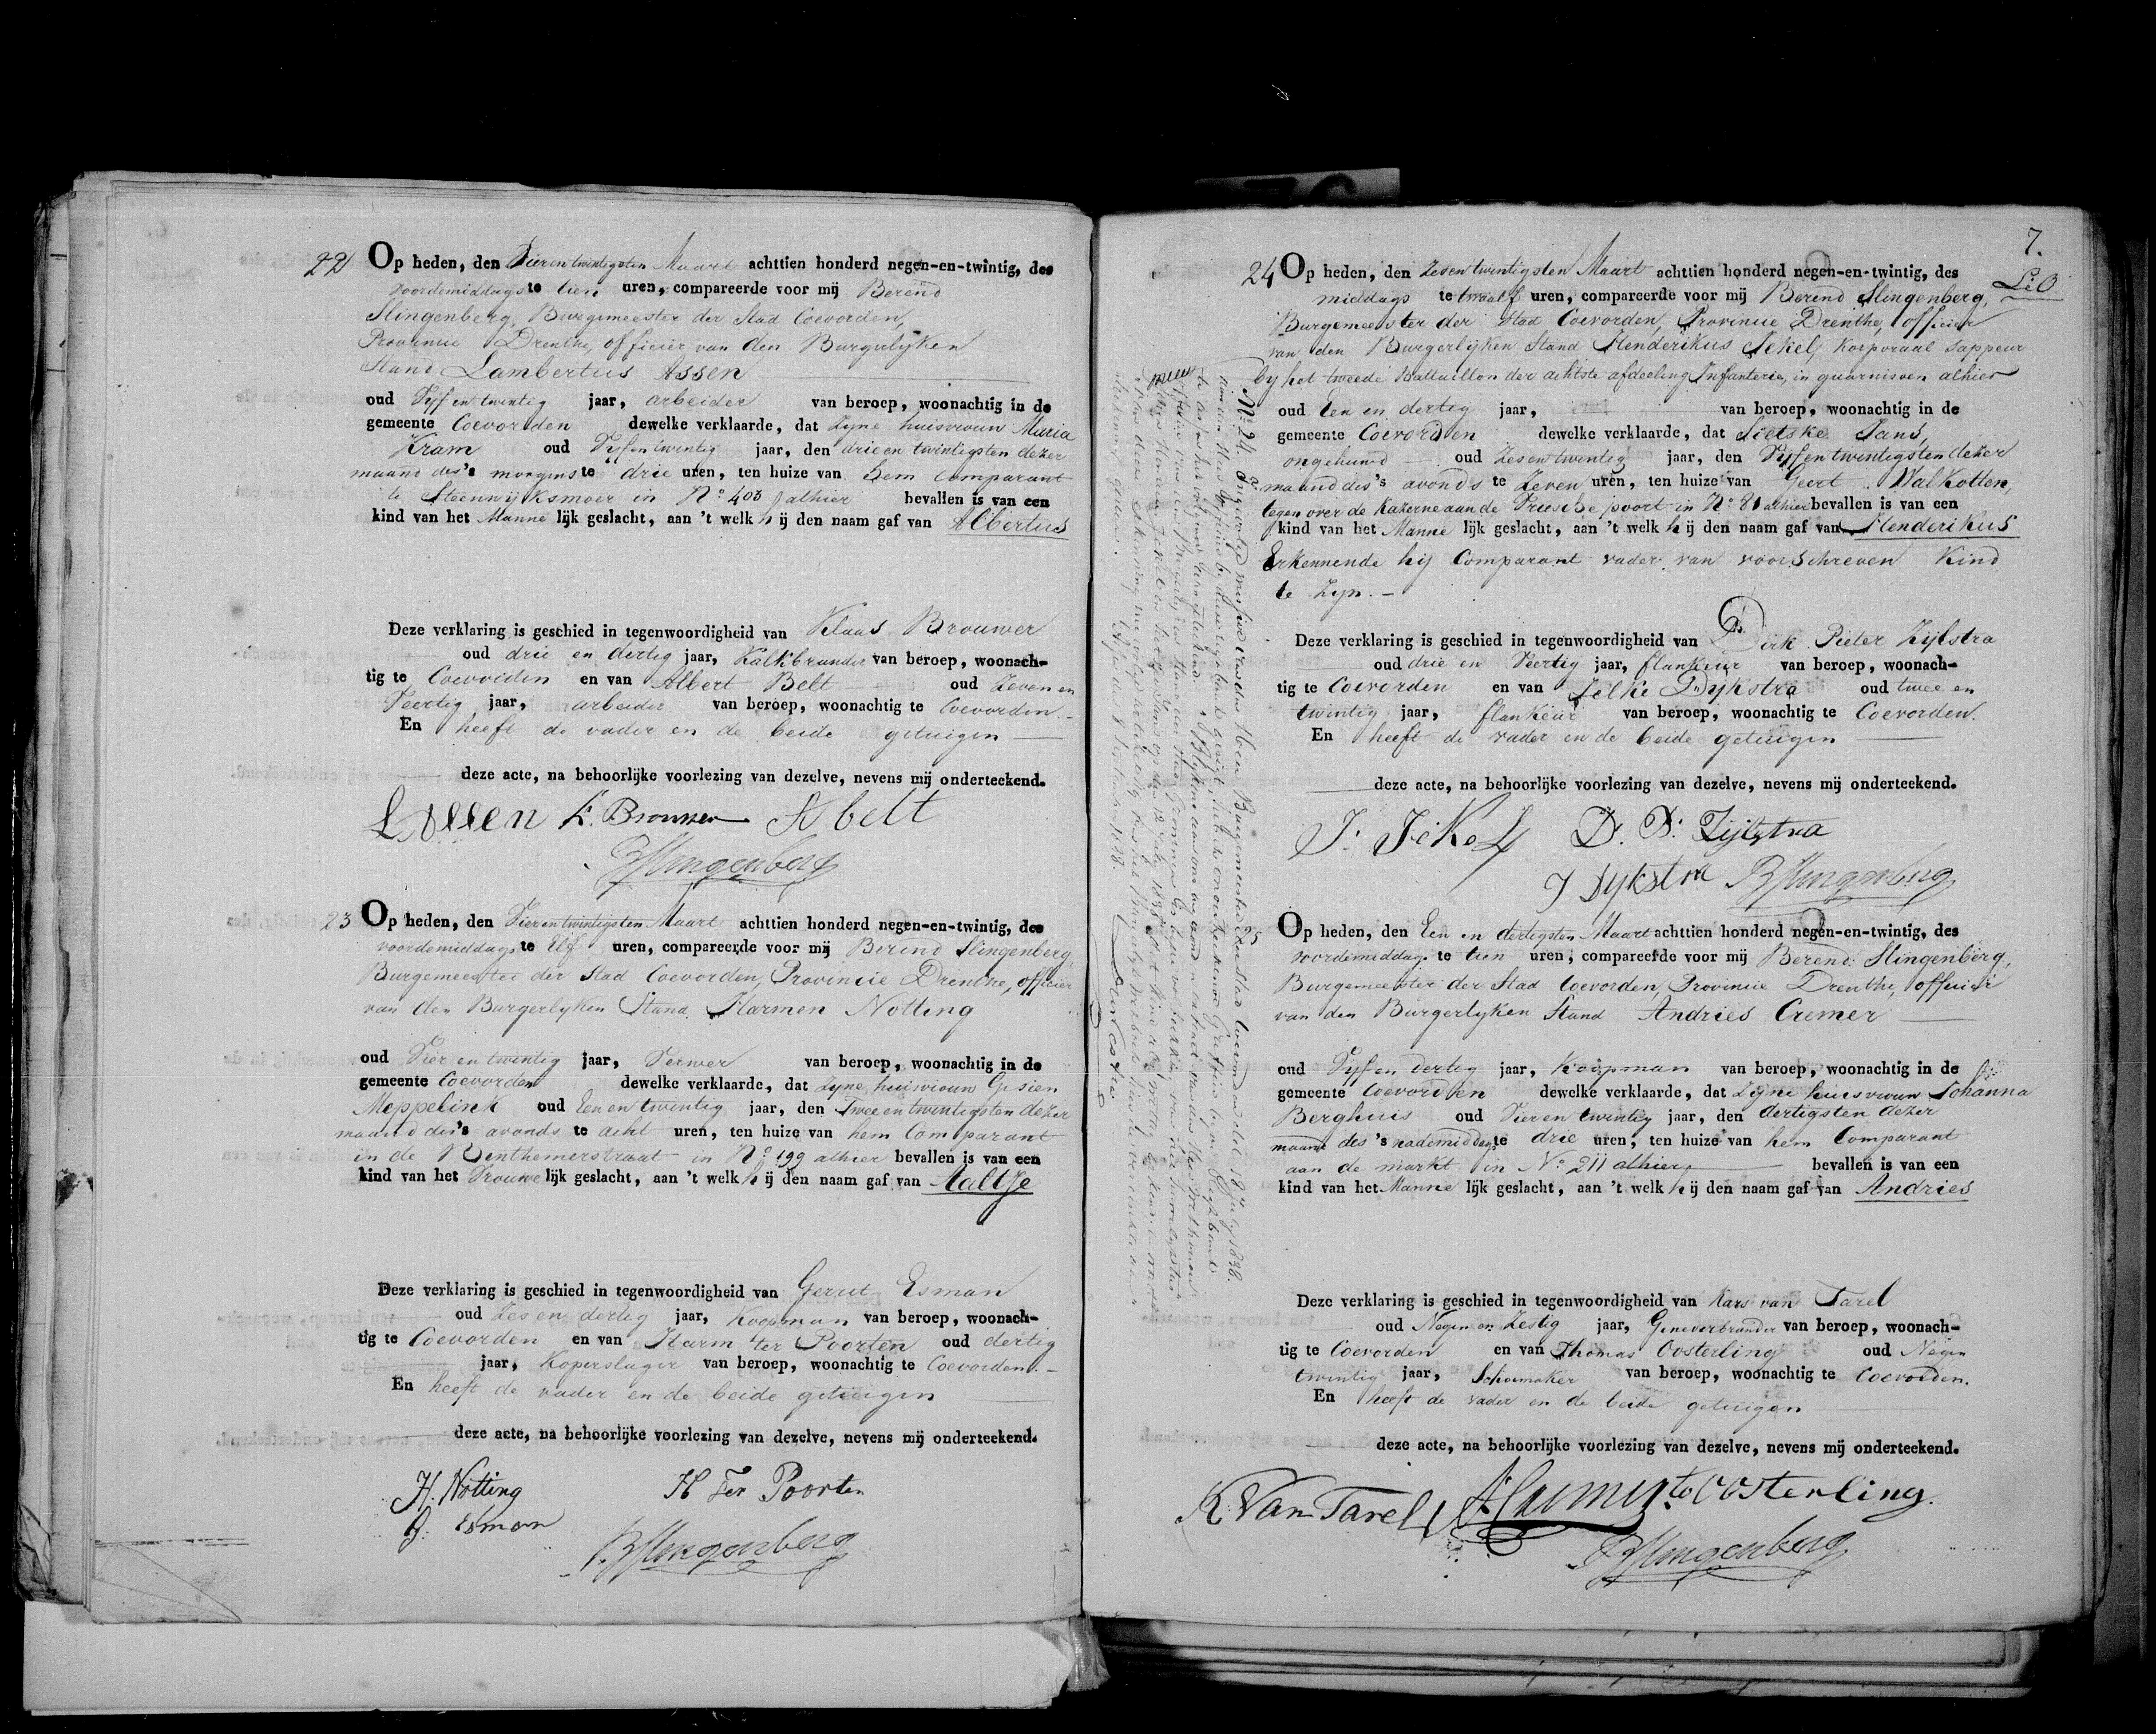 22 Op heden, den Vier en twintigsten Maart achttien honderd negen-en-twintig, des
voordemiddags te tien uren, compareerde voor mij Berend
Slingenberg, Burgemeester der Stad Coevorden,
Provincie Drenthe, officier van den Burgerlyken
Stand Lambertus Assen
oud Vyf en twintig jaar, arbeider van beroep, woonachtig in de
gemeente Coevorden dewelke verklaarde, dat Zyne huisvrouw Maria
Kram oud Vyf en twintig jaar, den drie en twintigsten dezer
maand des 's morgens te drie uren, ten huize van hem Comparant
te Steenwyksmoer in No 403 alhier bevallen is van een
kind van het Manne lijk geslacht, aan 't welk hij den naam gaf van Albertus
Deze verklaring is geschied in tegenwoordigheid van Klaas Brouwer
oud drie en dertig jaar, Kalkbrander van beroep, woonach-
tig te Coevorden en van Albert Belt oud Zeven en
Veertig jaar, arbeider van beroep, woonachtig te Coevorden.
En heeft de vader en de beide getuigen
deze acte, na behoorlijke voorlezing van dezelve, nevens mij onderteekend.
L Assen K. Brouwer A belt
BSlingenberg
23 Op heden, den Vier en twintigsten Maart achttien honderd negen-en-twintig, des
voordemiddags te Elf uren, compareerde voor mij Berend Slingenberg,
Burgemeester der Stad Coevorden, Provincie Drenthe, officier
van den Burgerlyken Stand Harmen Notting
oud Vier en twintig jaar, Verwer van beroep, woonachtig in de
gemeente Coevorden dewelke verklaarde, dat Zyne huisvrouw Gesien
Meppelink oud Een en twintig jaar, den Twee en twintigsten dezer
maand des 's avonds te acht uren, ten huize van hem Comparant
in de Benthemerstraat in No 199 alhier bevallen is van een
kind van het Vrouwe lijk geslacht, aan 't welk hij den naam gaf van Aaltje
Deze verklaring is geschied in tegenwoordigheid van Gerrit Esman
oud Zes en dertig jaar, Koopman van beroep, woonach-
tig te Coevorden en van Harm ter Poorten oud dertig
jaar, Koperslager van beroep, woonachtig te Coevorden.
En heeft de vader en de beide getuigen
deze acte, na behoorlijke voorlezing van dezelve, nevens mij onderteekend.
H. Notting H Ter Poorten
G. Esman
BSlingenberg
7.
24 Op heden, den Zes en twintigsten Maart achttien honderd negen-en-twintig, des
middags te twaalf uren, compareerde voor mij Berend Slingenberg,
Burgemeester der Stad Coevorden, Provincie Drenthe, officier
van den Burgerlijken Stand Henderikus Jekel, Korporaal Sappeur
by het tweede Battaillon der achtste afdeeling Infanterie, in guarnisoen alhier
oud Een en dertig jaar, van beroep, woonachtig in de
gemeente Coevorden dewelke verklaarde, dat Sietske Jans,
ongehuwd oud Zes en twintig jaar, den Vyf en twintigsten dezer
maand des 's avonds te Zeven uren, ten huize van Geert Walkotten,
tegen over de Kazerne aan de Friesche poort in No 81 alhier bevallen is van een
kind van het Manne lijk geslacht, aan 't welk hij den naam gaf van Henderikus
Erkennende hij Comparant vader van voorschreven Kind
te Zyn.
Deze verklaring is geschied in tegenwoordigheid van Dirk Pieter Zylstra
oud drie en Veertig jaar, flankeur van beroep, woonach-
tig te Coevorden en van Jelke Dykstra oud twee en
twintig jaar, flankeur van beroep, woonachtig te Coevorden.
En heeft de vader en de beide getuigen
deze acte, na behoorlijke voorlezing van dezelve, nevens mij onderteekend.
D. P. Zijlstra
J Dykstra BSlingenberg
25 Op heden, den Een en dertigsten Maart achttien honderd negen-en-twintig, des
voordemiddags te tien uren, compareerde voor mij Berend Slingenberg,
Burgemeester der Stad Coevorden, Provincie Drenthe, officier
van den Burgerlyken Stand Andries Cremer
oud Vyf en dertig jaar, Koopman van beroep, woonachtig in de
gemeente Coevorden dewelke verklaarde, dat Zyne huisvrouw Johanna
Berghuis oud Vier en twintig jaar, den dertigsten dezer
maand des 's nademiddags te drie uren, ten huize van hem Comparant
aan de markt in No 211 alhier bevallen is van een
kind van het Manne lijk geslacht, aan 't welk hij den naam gaf van Andries
Deze verklaring is geschied in tegenwoordigheid van Kars van Tarel
oud Negen en Zestig jaar, Geneverbrander van beroep, woonach-
tig te Coevorden en van Thomas Oosterling oud Negen
twintig jaar, Schoemaker van beroep, woonachtig te Coevorden.
En heeft de vader en de beide getuigen
deze acte, na behoorlijke voorlezing van dezelve, nevens mij onderteekend.
K. Van Tarel A Cremer t Oosterling.
BSlingenberg